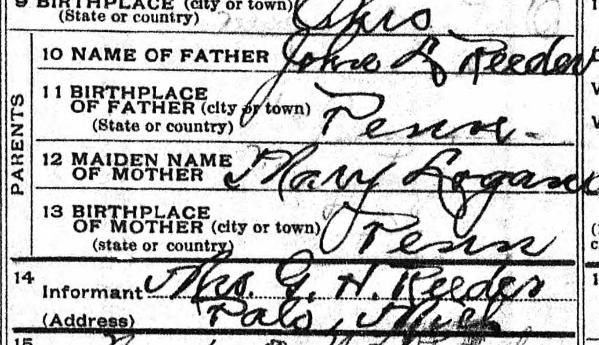 9 BIRTHPLACE (city or town)
(State or country) Ohio
PARENTS
10 NAME OF FATHER John L Reeder
11 BIRTHPLACE
OF FATHER (city or town)
(State or country) Penn.
12 MAIDEN NAME
OF MOTHER Mary Logan
13 BIRTHPLACE
OF MOTHER (city or town)
(state or country) Penn
14
Informant Mrs. G. H. Reeder
(Address) Palo, Mich
15